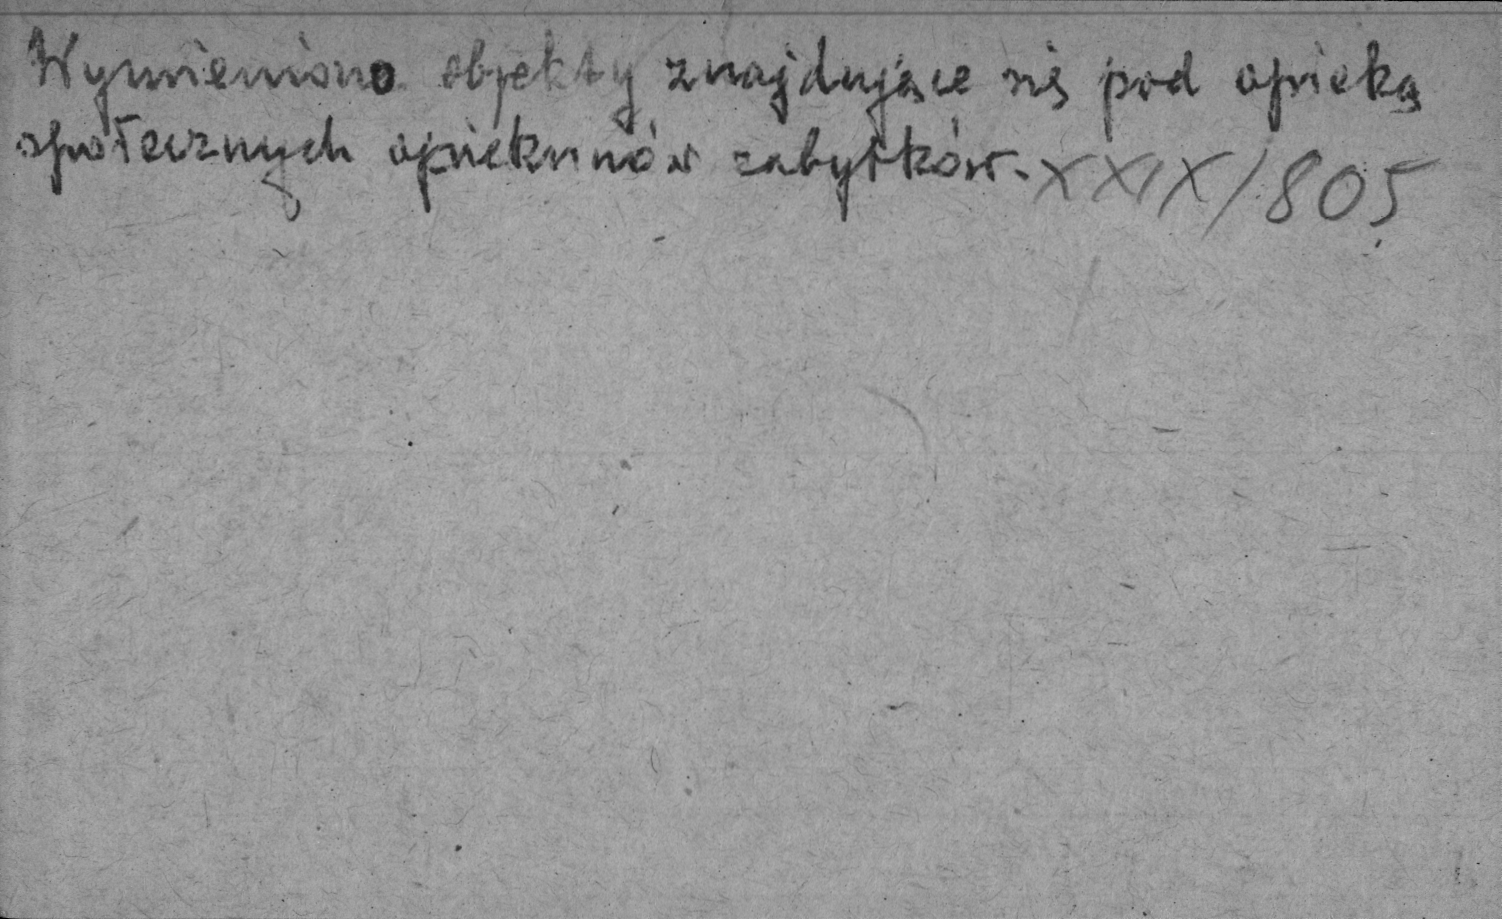 Wymieniono objekty znajdujące się pod opieką
społecznych opiekunów zabytków. XXIX/805